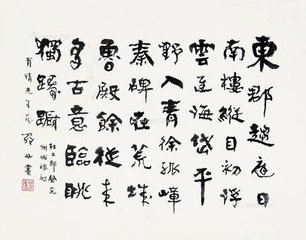 東郡趨庭日
南樓縱目初浮
雲連海岱平
野入青徐孤嶂
秦碑在荒城
魯殿餘從來
多古意臨眺
獨躊躇
杜工部登兗
州城樓
先生